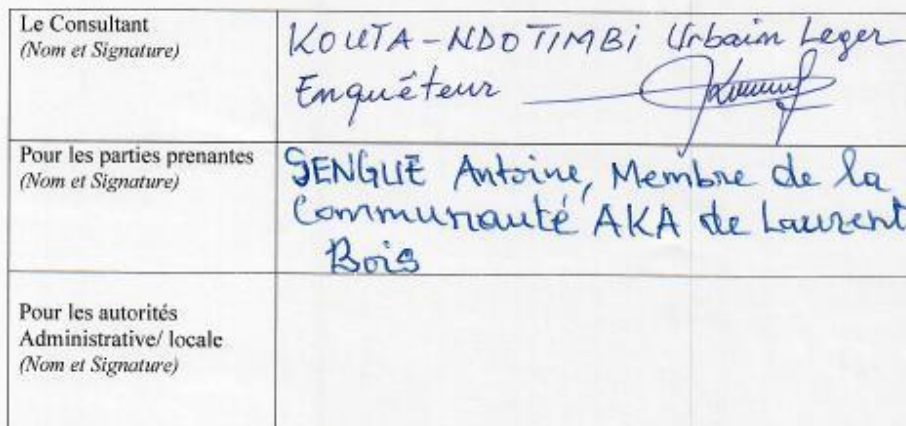 Le Consultant
(Nom et Signature)
KOUTA-NDOTIMBi Urbain Leger
Enquêteur
Pour les parties prenantes
(Nom et Signature)
SENGUE Antoine, Membre de la
Communauté AKA de Laurent
Bois
Pour les autorités
Administrative/ locale
(Nom et Signature)